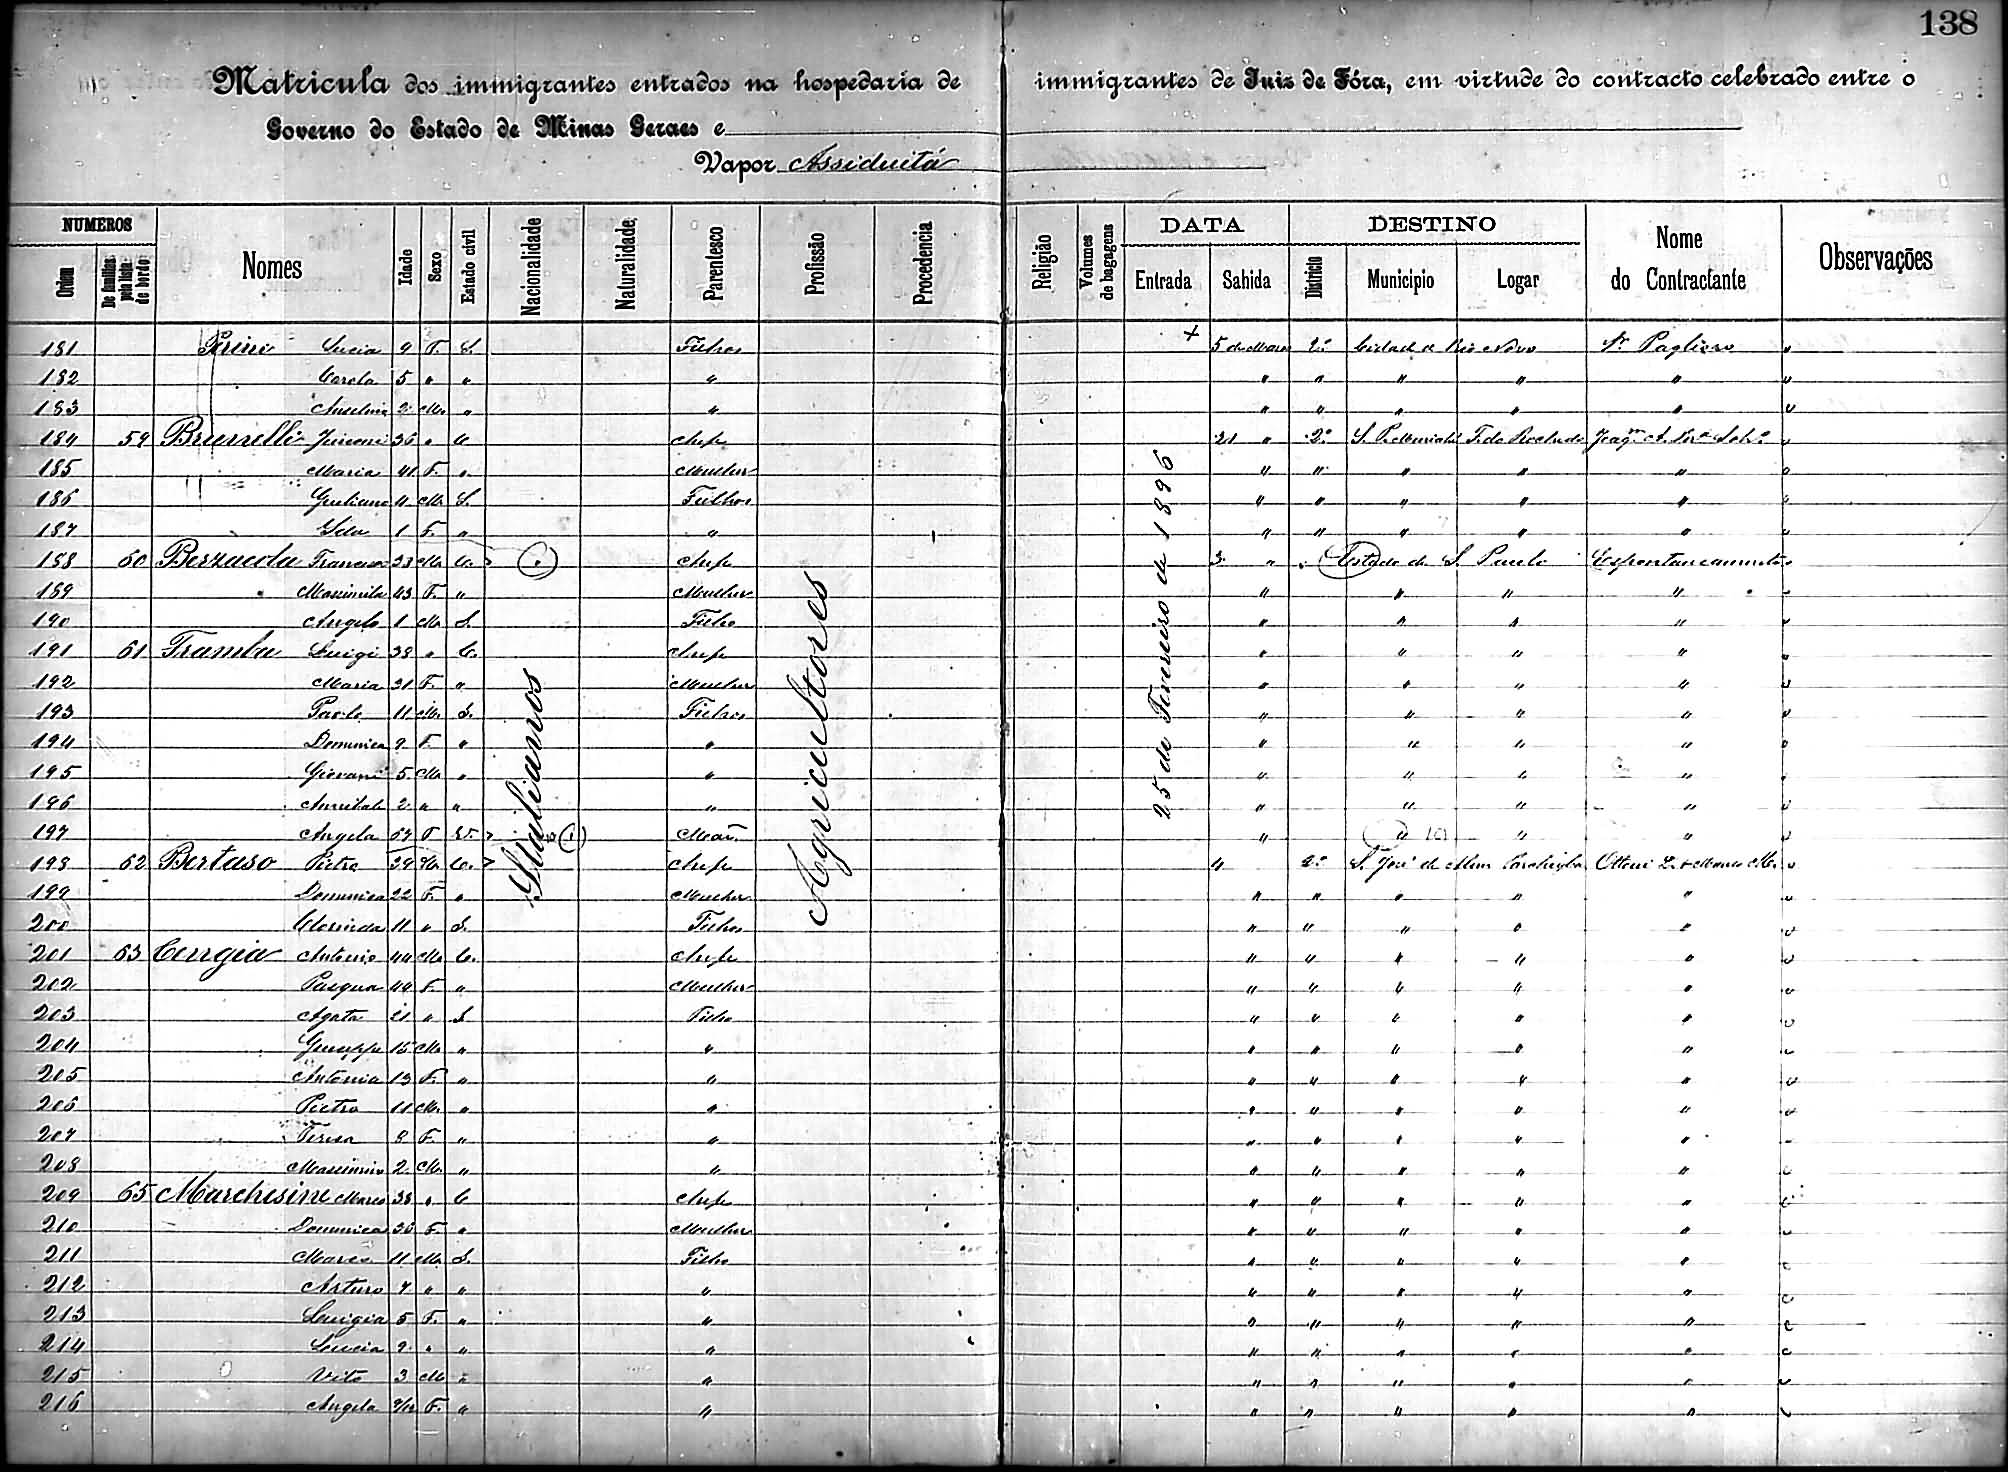 138
Matricula dos immigrantes entrados na hospedaria de immigrantes de Juiz de Fóra, em virtude do contracto celebrado entre o
Governo do Estado de Minas Geraes e
Vapor Assiduitá
NUMEROS DATA DESTINO
Ordem De familias pela lista de bordo Nomes Idade Sexo Estado civil Nacionalidade Naturalidade Parentesco Profissão Procedencia Religião Volumes de bagagens Entrada Sahida Districto Municipio Logar Nome do Contractante Observações
Italianos
Agricultores
25 de Fevereiro de 1896
181 Perini Lucia 9 F. S. Filhos + 5 de Março 2º Cidade de Rio Novo Pagliero
182 Carola 5 " " " " " " " "
183 2 M. " " " " " " "
184 59 Brunelli 36 " C. Chefe 21 " 2º
185 Maria 41 F. " Mulher " " " " "
186 Giuliano 4 M. S. Filhos " " " " "
187 1 F. " " " " " " "
188 60 Berzacola 33 M. C. Chefe 3 " Estado de S. Paulo Espontaneamente
189 Massimila 43 F. " Mulher " " " "
190 Angelo 1 M. S. Filho " " " "
191 61 Tramba Luigi 38 " C. Chefe " " " "
192 Maria 31 F. " Mulher " " " "
193 Paolo 11 M. S. Filhos " " " "
194 Domenica 9 F. " " " " " "
195 Giovani 5 M. " " " " " "
196 Annibale 2 " " " " " " "
197 Angela 67 F. V. Mãi " " " "
198 62 Bertaso Pietro 29 M. C. Chefe " 2º S. José de Alem Parahyba
199 Domenica 22 F. " Mulher " " " " "
200 Clorinda 11 " S. Filhos " " " " "
201 63 Cengia Antonio 44 M. C. Chefe " " " " "
202 Pasqua 49 F. " Mulher " " " " "
203 Agata 21 " S. Filho " " " " "
204 Giuseppe 15 M. " " " " " " "
205 Antonia 13 F. " " " " " " "
206 Pietro 11 M. " " " " " " "
207 Teresa 8 F. " " " " " " "
208 Massimino 2 M. " " " " " " "
209 65 Marchesine Marco 38 " C. Chefe " " " " "
210 Domenica 36 F. " Mulher " " " " "
211 Marco 11 M. S. Filho " " " " "
212 Arturo 7 " " " " " " " "
213 Luigia 5 F. " " " " " " "
214 Lucia 2 " " " " " " " "
215 Vito 3 M. " " " " " " "
216 Angela F. " " " " " " "